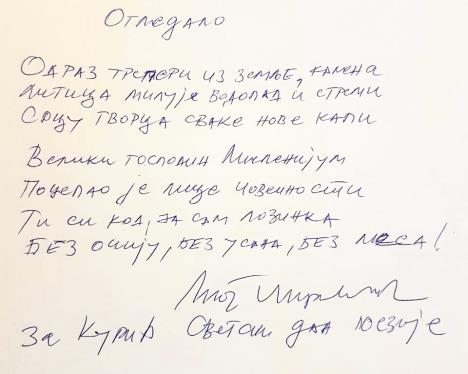 Огледало
Одраз трепери из земље, камена
Литица милује водопад и стреми
Срцу творца сваке нове капи
Велики господин Миленијум
Поцепао је лице човечности
Ти си код, ја сам лозинка
Без очију, без уста, без меса!
За Курир Светски дан поезије